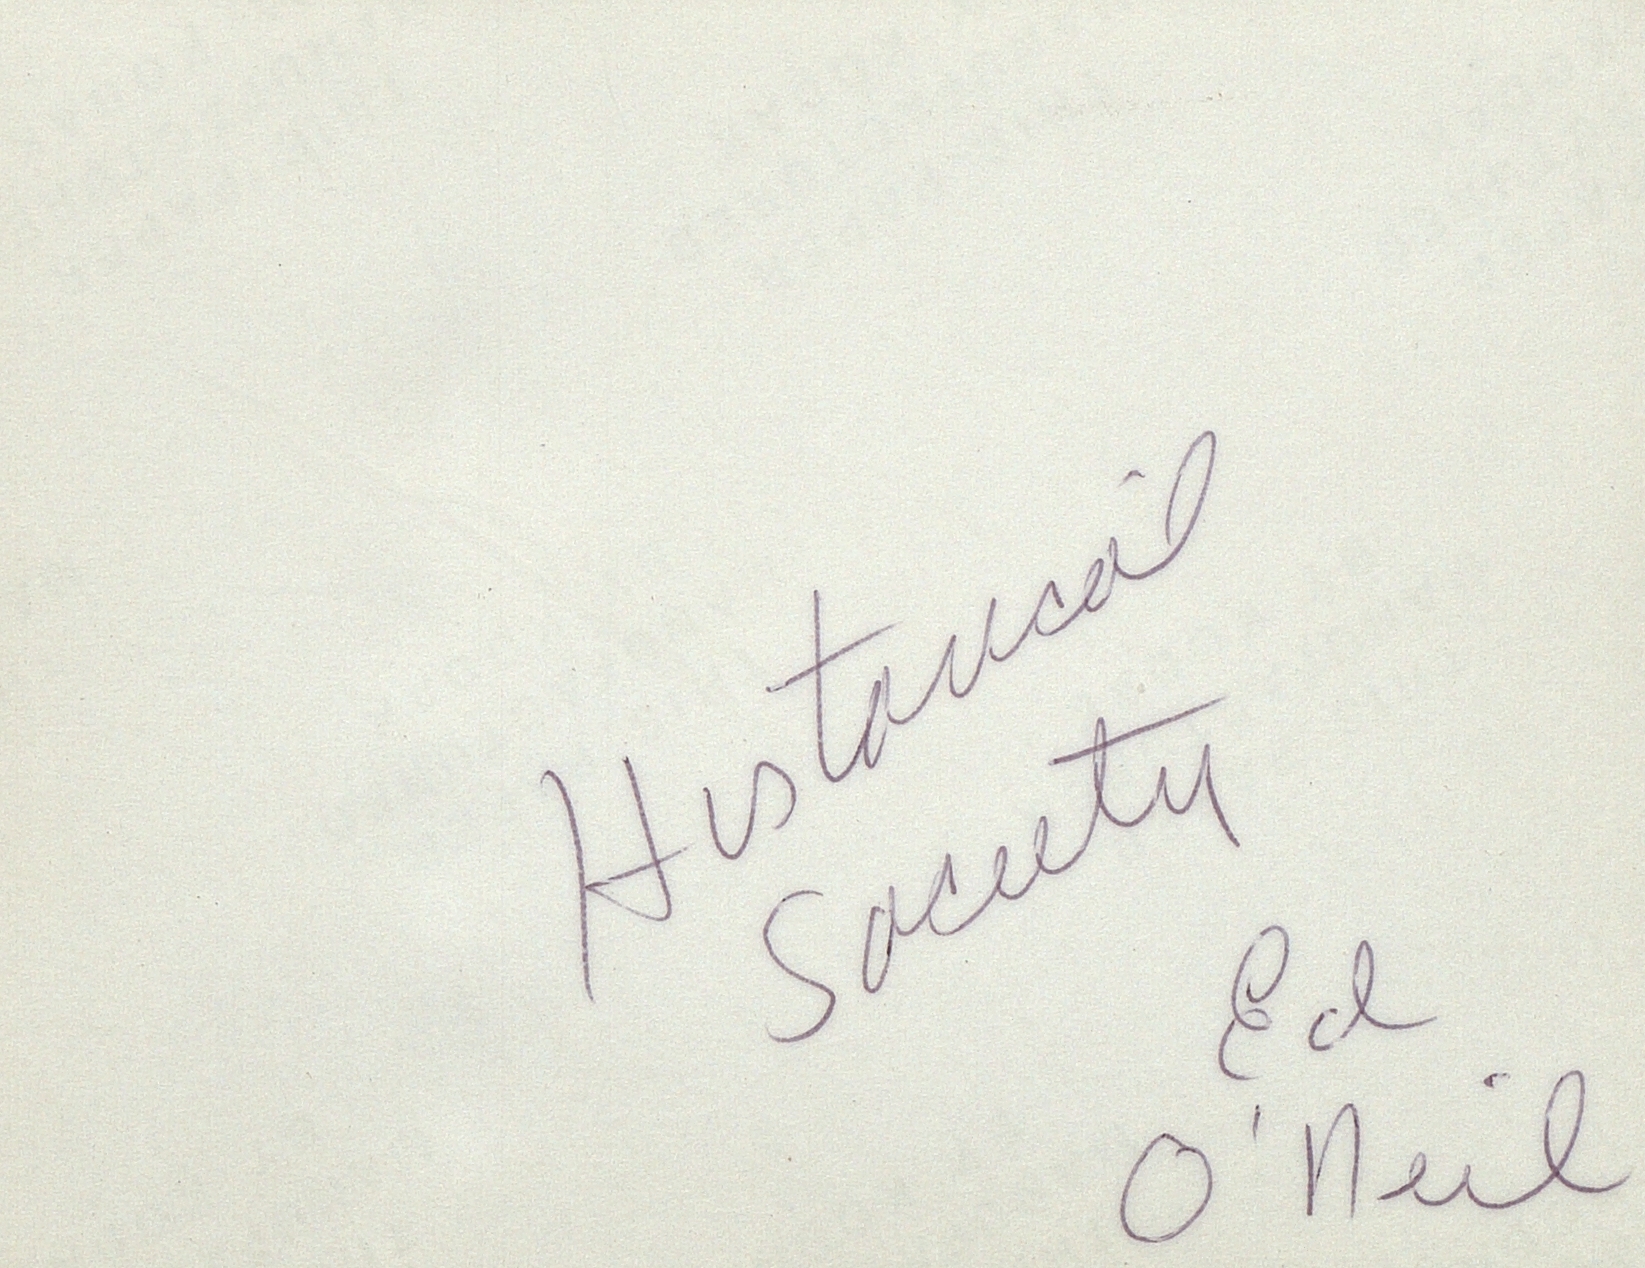 Historical
Society
Ed
O'Neil